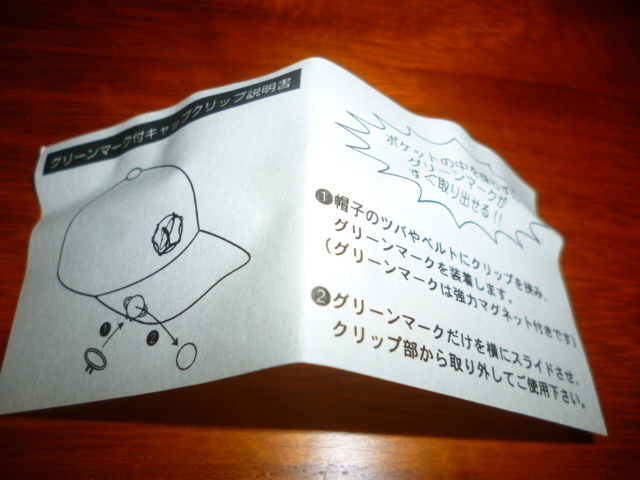 グリーンマーク付キャップクリップ説明書
ポケットの中を
グリーンマークが
すぐ取り出せる!!
❶帽子のツバやベルトにクリップを挟み、
グリーンマークを装着します。
(グリーンマークは強力マグネット付きです)
❷グリーンマークだけを横にスライドさせ、
クリップ部から取り外してご使用下さい。
❶
❷